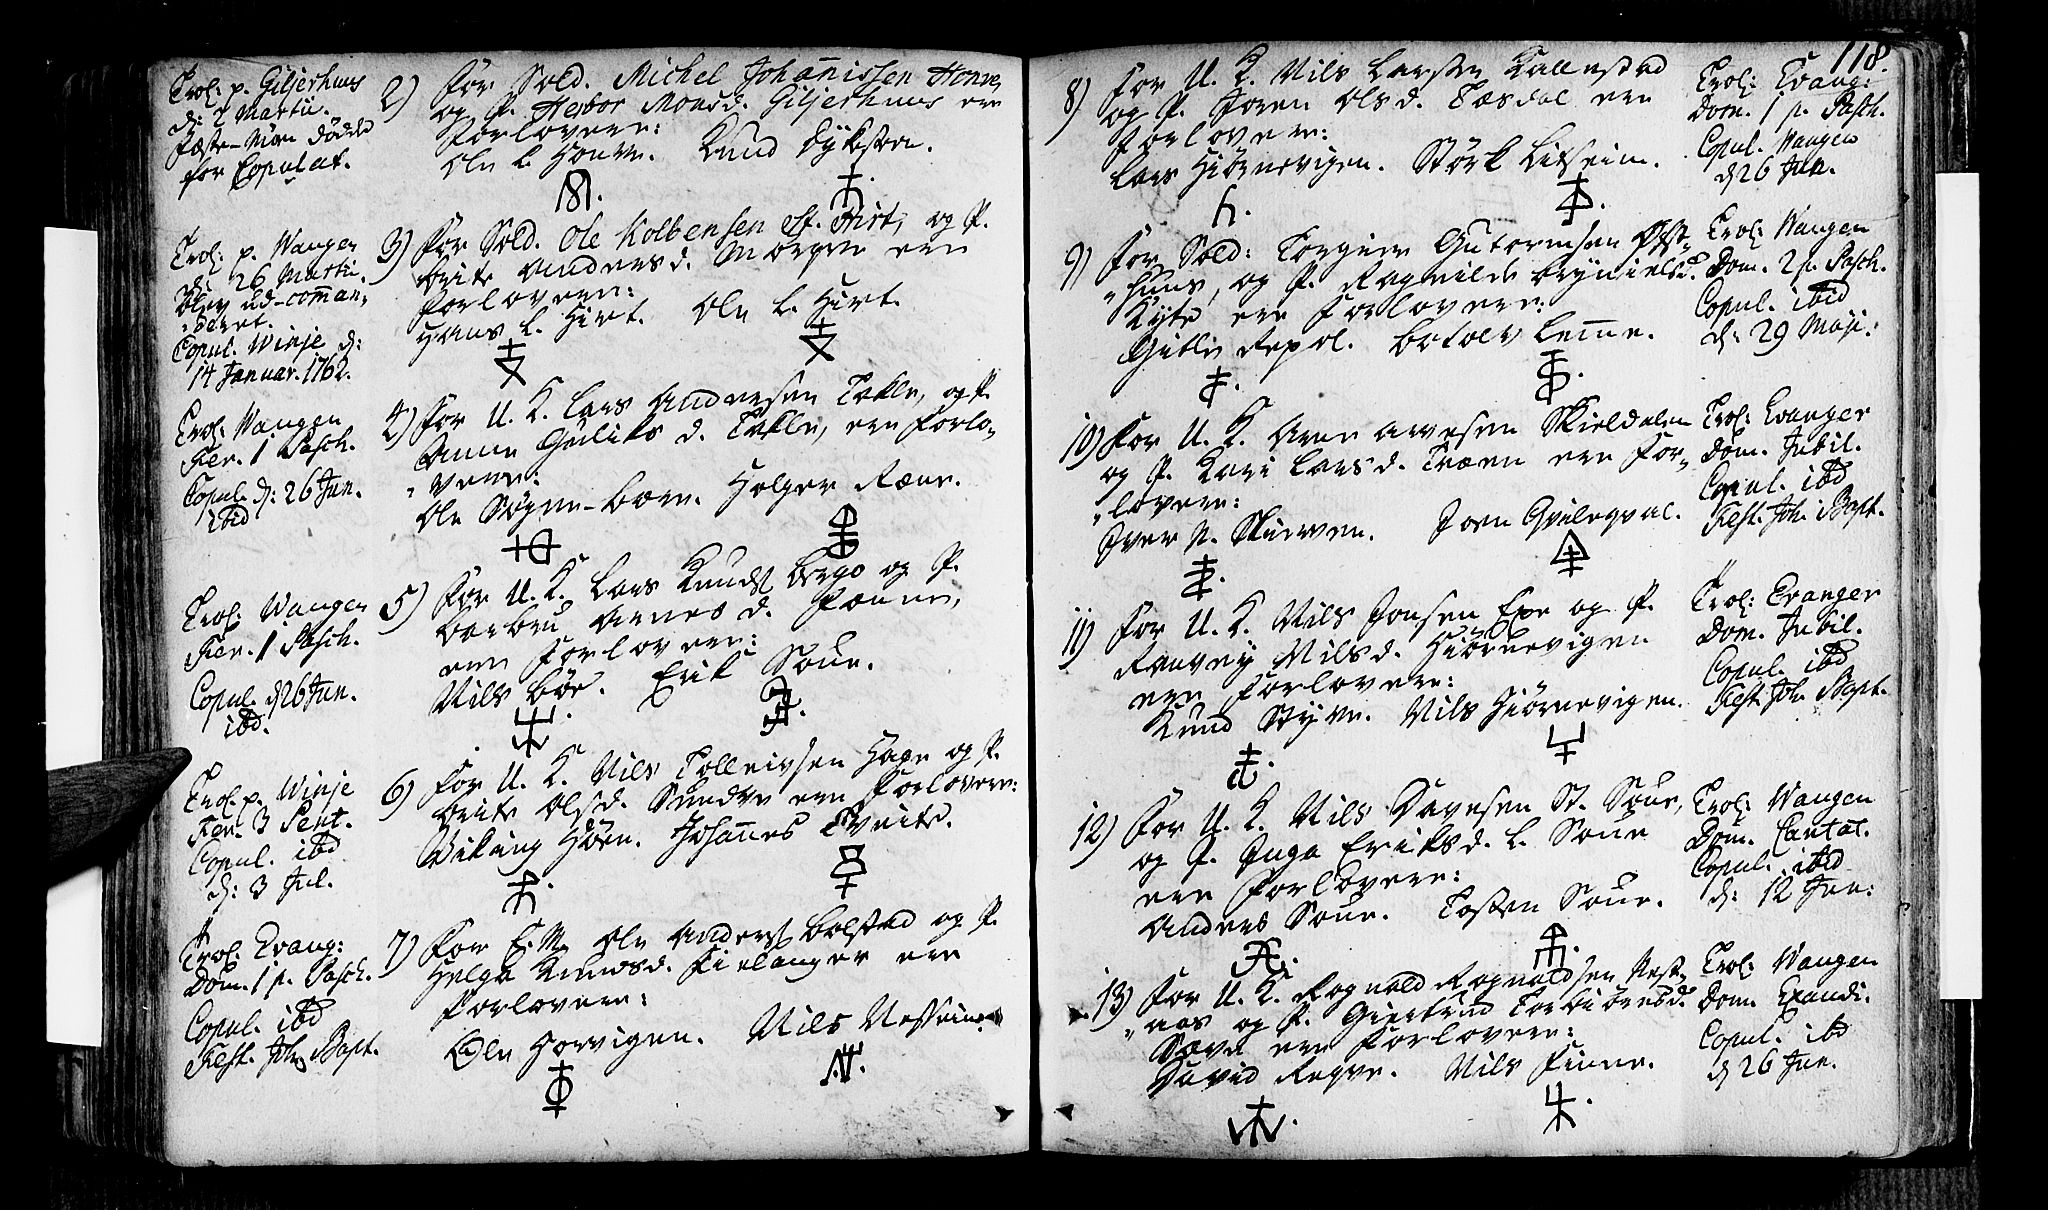 Trol: p. Giljerhuus
d: 2 Martii.
Fæste-Møen dødde
for Copulat.
2) For Sold. Michel Johannissen Honve,
og P. Herbor Monsd. Giljerhuus ere
Forlovere:
Ole L. Honve. Knud Dykesteen.
Trol: p. Wangen
d: 26 Martii.
blev ud-comman,
deret.
Copul. Winje d:
14 Januar. 1762.
3) For Sold. Ole Kolbensen St. Hirt, og P.
Brite Andersd. Mørque ere
Forlovere:
Hans L. Hirt. Ole L. Hirt.
Trol: Wangen
Fer. 1 Pasch.
Copul. d: 26 Jun.
ibid
4) For U. K. Lars Andersen Tekle, og P.
Anna Guliks d. Tekle, ere Forlo-
vere:
Ole Søgne-bære. Holger Ræne.
Trol: Wangen
Fer. 1 Pasch.
Copul. d 26 Jun.
ibd.
5) For U. K. Lars Knuds Berge og P.
Barbru Arnes d. Fænne,
ere Forlovere:
Nils Bøe. Erik Soue.
Trol. p. Winje
Fer. 3 Pent.
Copul. ibd
d: 3 Jul.
6) For U. K. Nils Tolleivsen Hage og P.
Brite Olsd. Sundve ere Forlovere:
Viking Høen. Johannes Tveite.
Trol: Evang:
Dom. 1 p. Pasch.
Copul. ibd
Fest. Joh. Bapt.
7) For E. M. Ole Anders Bolstad og P.
Helga Knudsd. Fielanger ere
Forlovere:
Ole Horvigen. Nils Nesheim.
118.
8) For U. K. Nils Larsen Kallestad
og P. Joren Olsd. Tæsdal ere
Forlovere:
Lars Hiørnevigen. Størk Litseim.
Trol: Evang:
Dom. 1 p. Pasch.
Copul. Wangen
d 26 Jun.
9) For Sold: Torgier Gutormsen Øst-
huus, og P. Ragnilde Brynielsd.
Kyte ere Forlovere:
Gitle Repol. Botolv Lemme.
Trol: Wangen
Dom. 2 p. Pasch.
Copul. ibid
d: 29 Maji:
10) For U. K. Arne Arnesen Skieldalen
og P. Kari Larsd. Træen ere For-
lovere:
Iver N. Skierven. Joen Gullaqval.
Trol: Evanger
Dom. Jubil.
Copul. ibd
Fest. Joh. Bapt.
11) For U. K. Nils Jonsen Exe og P.
Ranvey Nilsd. Hiørnevigen
ere Forlovere:
Knud Styve. Nils Hiørnevigen.
Trol: Evanger
Dom. Jubil.
Copul. ibd
Fest Joh. Bapt.
12) For U. K. Nils Davesen St. Soue,
og P. Inga Eriksd. L. Soue
ere Forlovere:
Anders Soue. Tosten Soue.
Trol: Wangen
Dom. Cantat.
Copul. ibid
d: 12 Jun:
13) For U. K. Rognald Rognaldsen Nest-
aas og P. Giertrud Torbiørnsd.
Sæve ere Forlovere:
David Reqve. Nils Finne.
Trol: Wangen
Dom. Exaudi.
Copul. ibd
d 26 Jun.